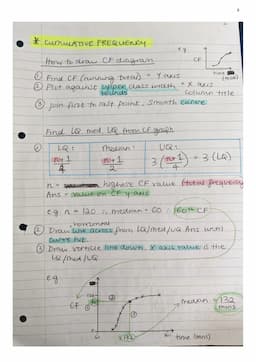 * CUMULATIVE FREQUENCY
How to draw CF diagram
e.g
CF
① Find CF (running total) = Y axis
② Plot against upper class width = X axis
bounds
column title
③ Join first to last point, smooth curve
Find LQ, med, UQ from CF graph
①
LQ:
median:
UQ:
n+1
4
n+1
2
3 (n+1) = 3 (LQ)
4
n = highest CF value (total frequency)
Ans = value on CF y axis
e.g. n = 120 ∴ median = 60 60th CF
horizontal
② Draw line across from LQ/med/UQ Ans until
curve
③ Draw verticle line down. X axis value is the
LQ/med/UQ
e.g
CF
median = 132
(mins)
X132
time (mins)